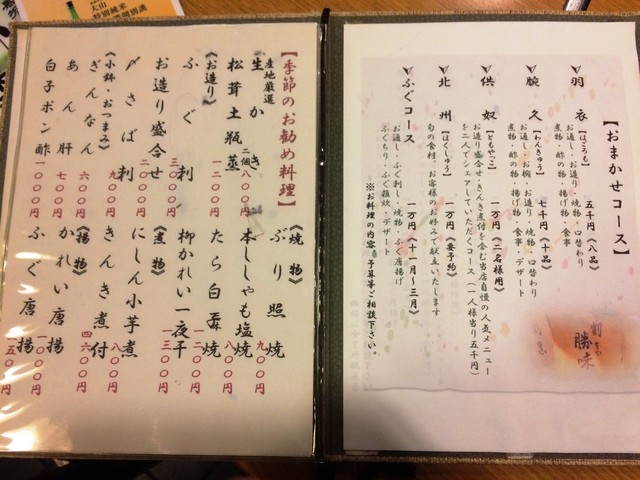 【おまかせコース】
羽衣【はごろも】 五千円（八品）
お通し・お造り・焼物・口替わり
煮物・酢の物・揚げ物・食事
腕久【わんきゅう】 七千円（十品）
お通し・お椀・お造り・焼物・口替わり
煮物・酢の物・揚げ物・食事・デザート
供奴【ともやっこ】 一万円（二名様用）
お造り盛合せ・きんき煮付を含む当店自慢の人気メニュー
を二人でシェアしていただくコース（一人様当り五千円）
北州【ほくしゅう】 一万円（要予約）
旬の食材、お客様のお好みで献立いたします
ふぐコース 一万円（十一月～三月）
お通し・ふぐ刺し・焼物・ふぐ唐揚げ
ふぐちり・ふぐ雑炊・デザート
※お料理の内容、予算等ご相談下さい。
割烹
勝味
【季節のお勧め料理】
産地厳選
生かき 二個八〇〇円
松茸土瓶蒸 一二〇〇円
《お造り》
ふぐ刺 三〇〇〇円
お造り盛合せ 二〇〇〇円
〆さば刺 九〇〇円
《小鉢・おつまみ》
ぎんなん 六〇〇円
あん肝 七〇〇円
白子ポン酢 一〇〇〇円
《焼物》
ぶり照焼 九〇〇円
本ししゃも塩焼 八〇〇円
たら白焼 一二〇〇円
柳かれい一夜干 一三〇〇円
《煮物》
にしん小芋煮 八〇〇円
きんき煮付 四六〇〇円
《揚物》
かれい唐揚 一〇〇〇円
ふぐ唐揚 一五〇〇円
大山
特別純米